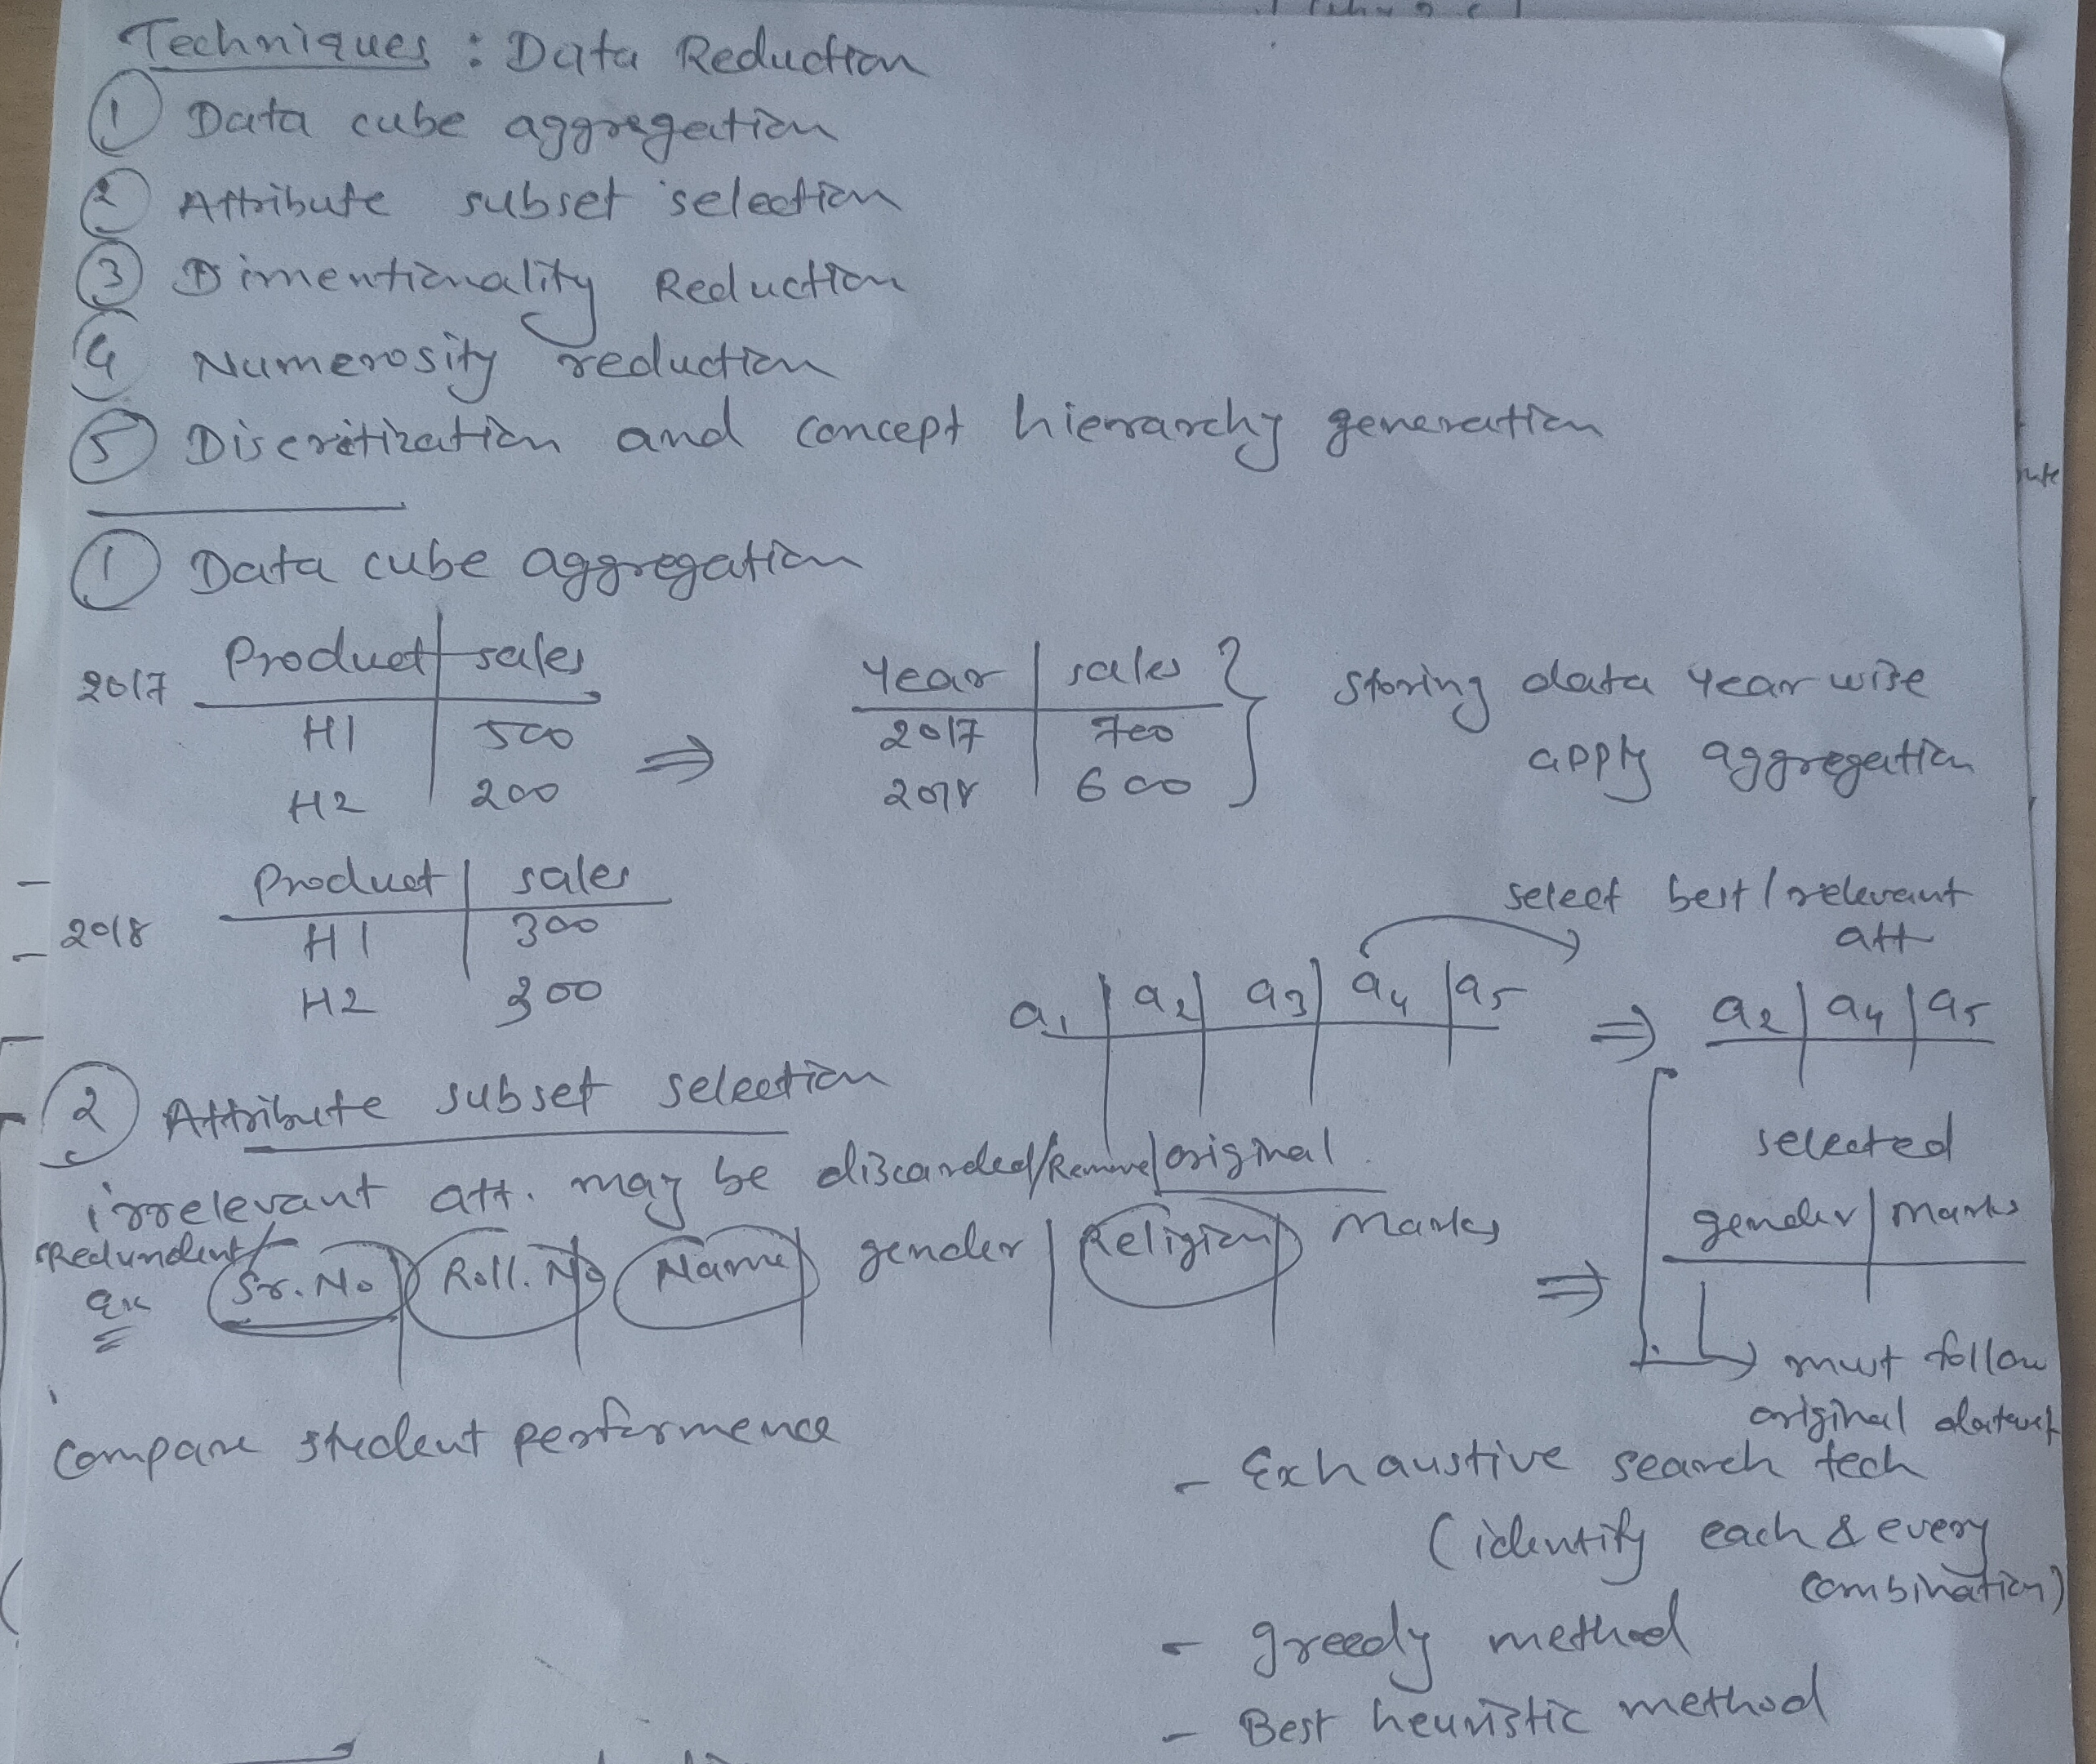 Techniques : Data Reduction
1 Data cube aggregation
2 Attribute subset selection
3 Dimentionality Reduction
4 Numerosity reduction
5 Discritization and concept hierarchy generation
1 Data cube aggregation
2017 Product sales
H1 500
H2 200
⇒
year sales
2017 700
2018 600
storing data year wise
apply aggregation
2018 Product sales
H1 300
H2 300
select best/relevant
att
a1 a2 a3 a4 a5 ⇒ a2 a4 a5
2 Attribute subset selection
irrelevant att. may be discarded/Remove/original
Redundent
Ex Sr. No Roll. No Name gender Religion Marks ⇒
selected
gender Marks
must follow
original dataset
Compare student performence
- Exhaustive search tech
(identify each & every
combination)
- greedy method
- Best heuristic method